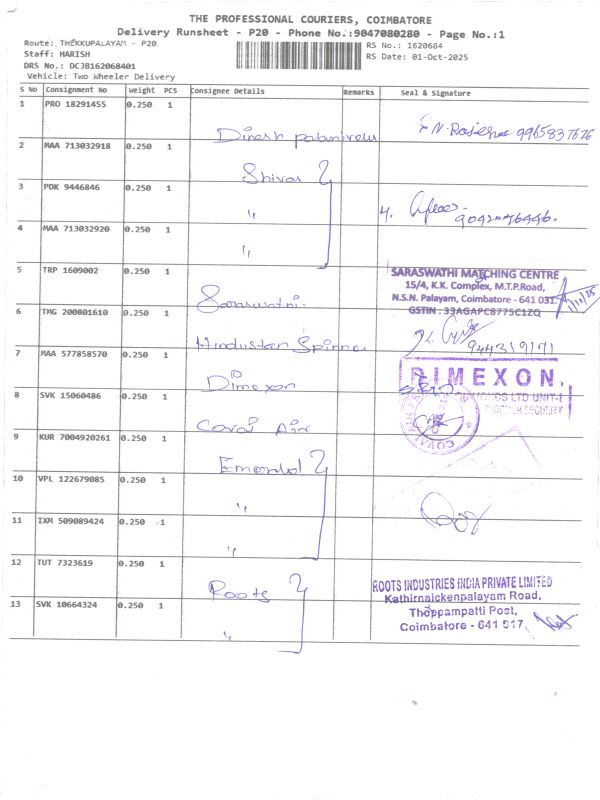 THE PROFESSIONAL COURIERS, COIMBATORE
Delivery Runsheet - P20 - Phone No.:9047080280 - Page No.:1
Route: THEKKUPALAYAM - P20
Staff: HARISH
DRS No.: DCJB162068401
Vehicle: Two Wheeler Delivery
RS No.: 1620684
RS Date: 01-Oct-2025
S No Consignment No Weight PCS Consignee Details Remarks Seal & Signature
1 PRO 18291455 0.250 1 Dinesh palanivelu 9965837676
2 MAA 713032918 0.250 1 Shivas
3 PDK 9446846 0.250 1 "
4 MAA 713032920 0.250 1 "
5 TRP 1609002 0.250 1 Saraswathi
SARASWATHI MATCHING CENTRE
15/4, K.K. Complex, M.T.P.Road,
N.S.N. Palayam, Coimbatore - 641 031.
GSTIN : 33AGAPC8775C1ZQ
1/10/25
6 TMG 200801610 0.250 1 Hindustan Spinner
7 MAA 577858570 0.250 1 Dimexon
DIMEXON
8 SVK 15060486 0.250 1 Covai Air
9 KUR 7004920261 0.250 1 Emerald
10 VPL 122679085 0.250 1 "
11 IXM 509089424 0.250 1 "
12 TUT 7323619 0.250 1 Roots
13 SVK 10664324 0.250 1 "
ROOTS INDUSTRIES INDIA PRIVATE LIMITED
Kathirnaickenpalayam Road,
Thoppampatti Post,
Coimbatore - 641 017.